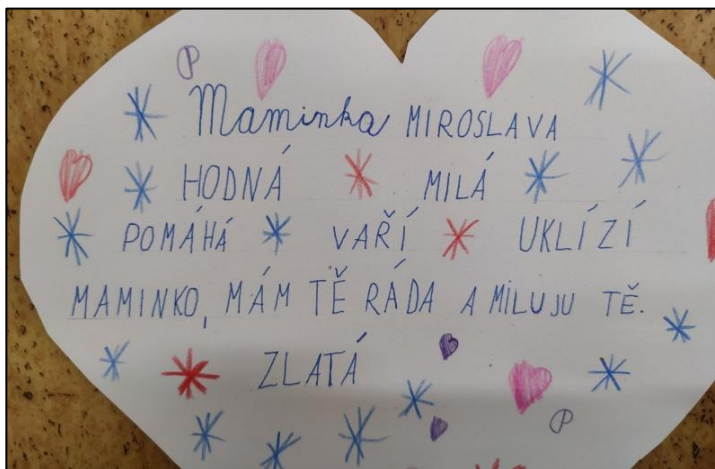 Maminka MIROSLAVA
HODNÁ MILÁ
POMÁHÁ VAŘÍ UKLÍZÍ
MAMINKO, MÁM TĚ RÁDA A MILUJU TĚ.
ZLATÁ